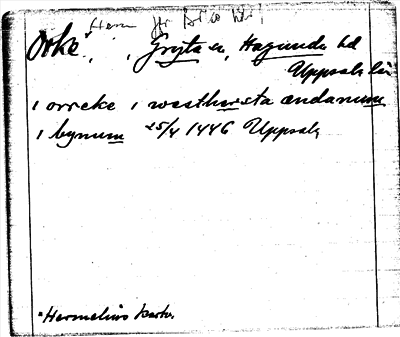 Hem
Orke*, , Gryta sn, Hagunda hd
Uppsala län
i orreke i westhersta ændanum
i bynum 25/4 1446 Uppsala
*Hermelins karta.